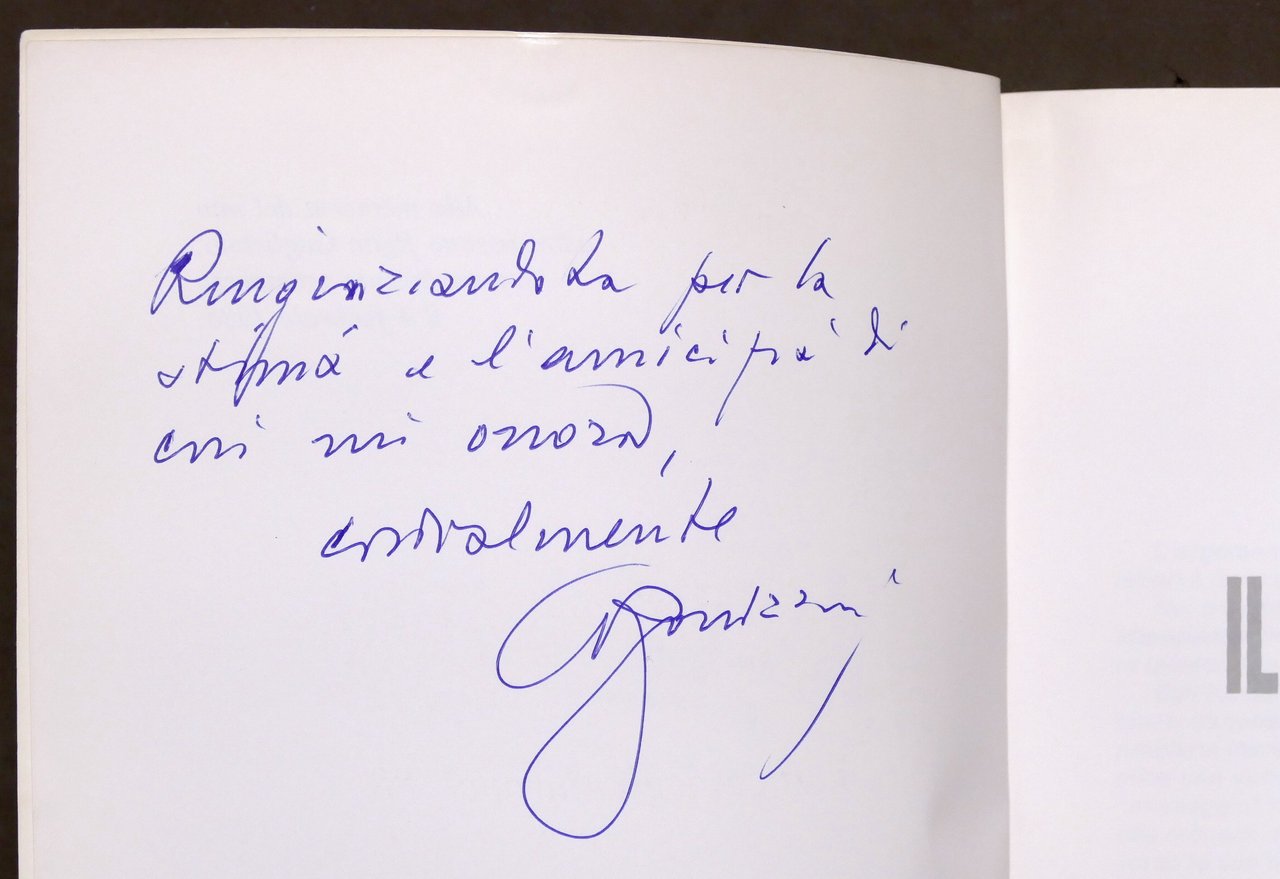 Ringraziandola per la
stima e l'amicizia di
cui mi onora,
cordialmente
IL